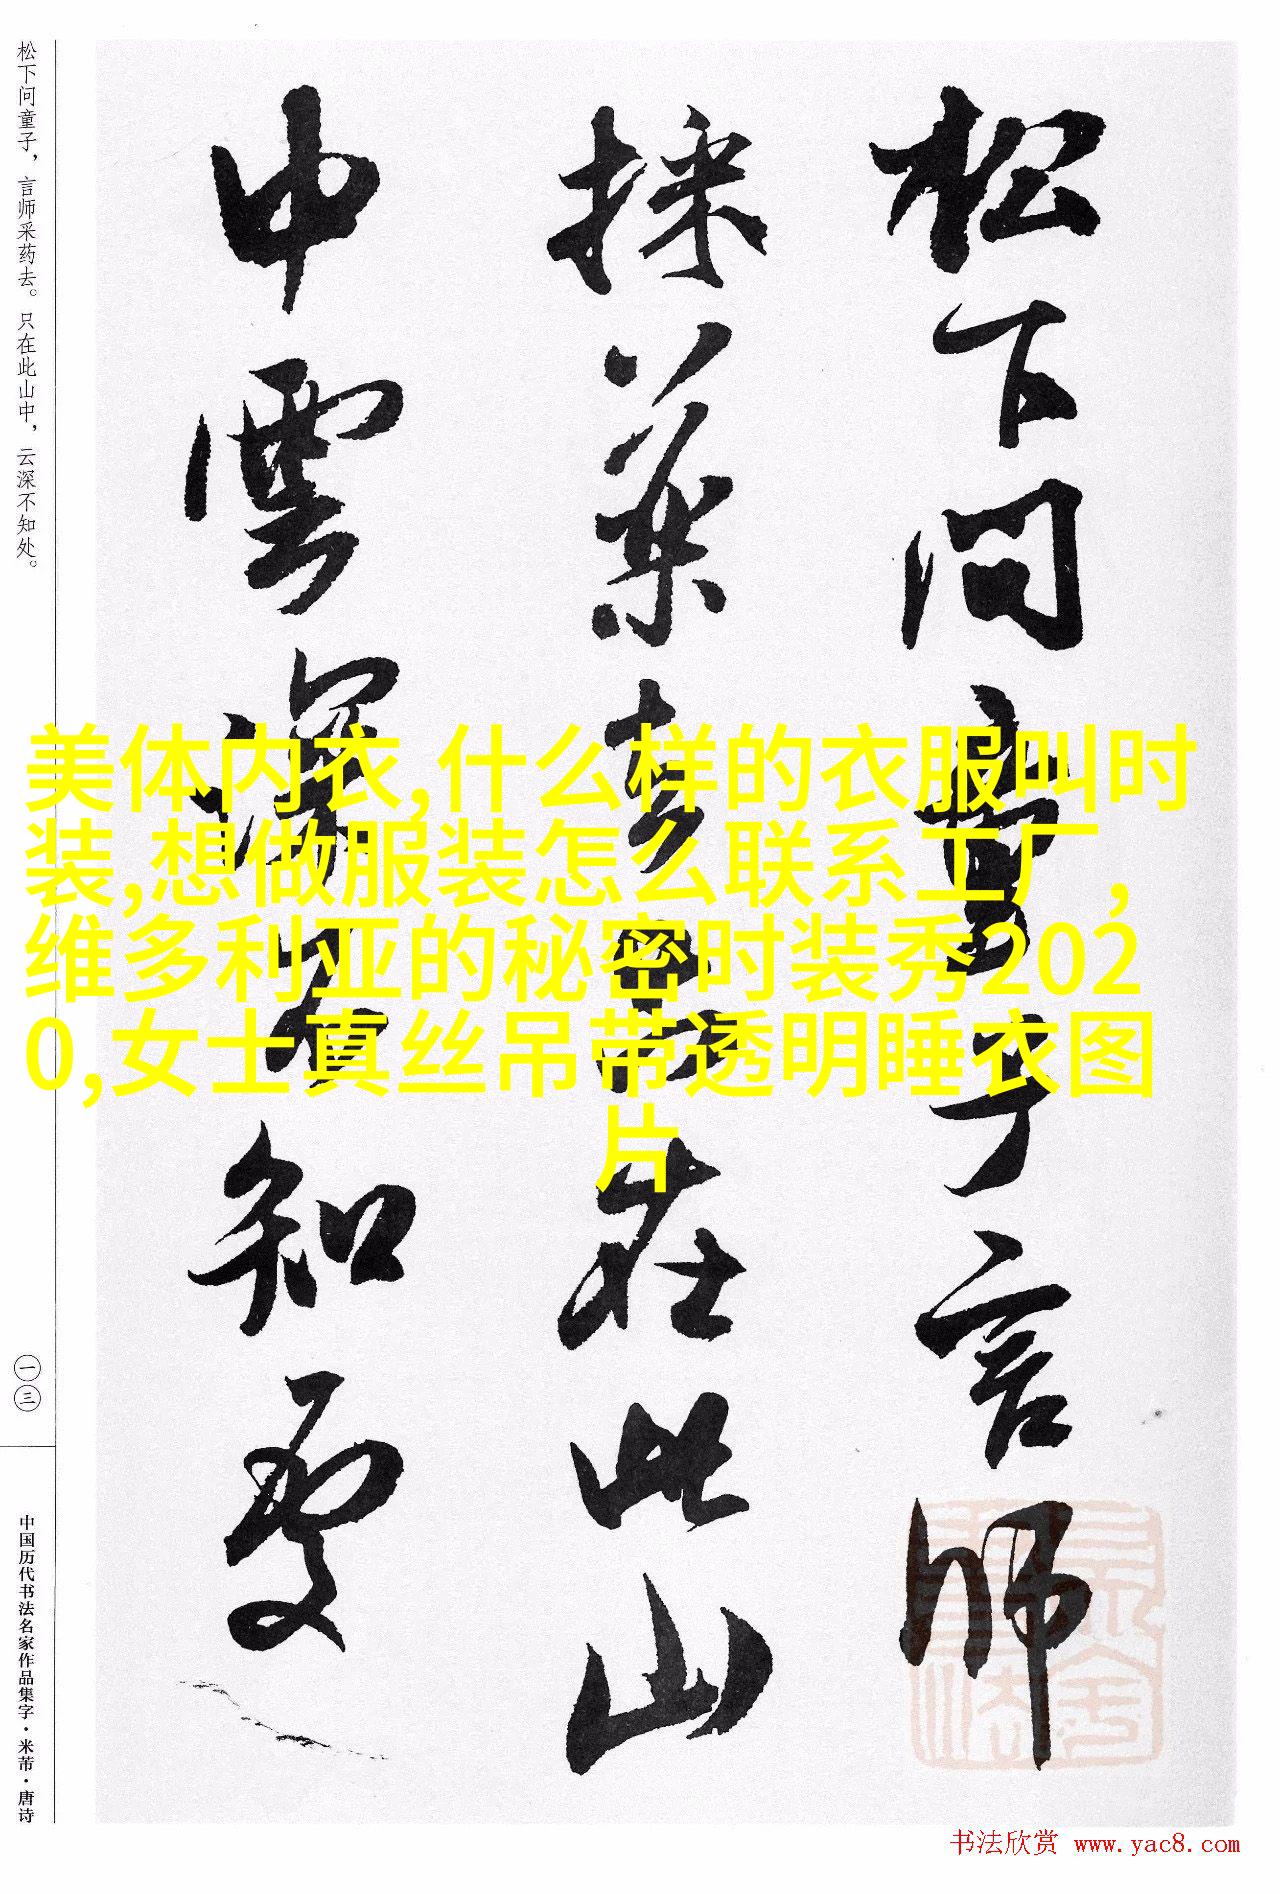 松下问童子，言师采药去。只在此山中，云深不知处。
松下问童子言师
採藥去只在此山
中雲深不知處
美体内衣,什么样的衣服叫时
装,想做服装怎么联系工厂,
维多利亚的秘密时装秀202
0,女士真丝吊带透明睡衣图
片
一三
中国历代书法名家作品集字·米芾·唐诗
书法欣赏 www.yac8.com